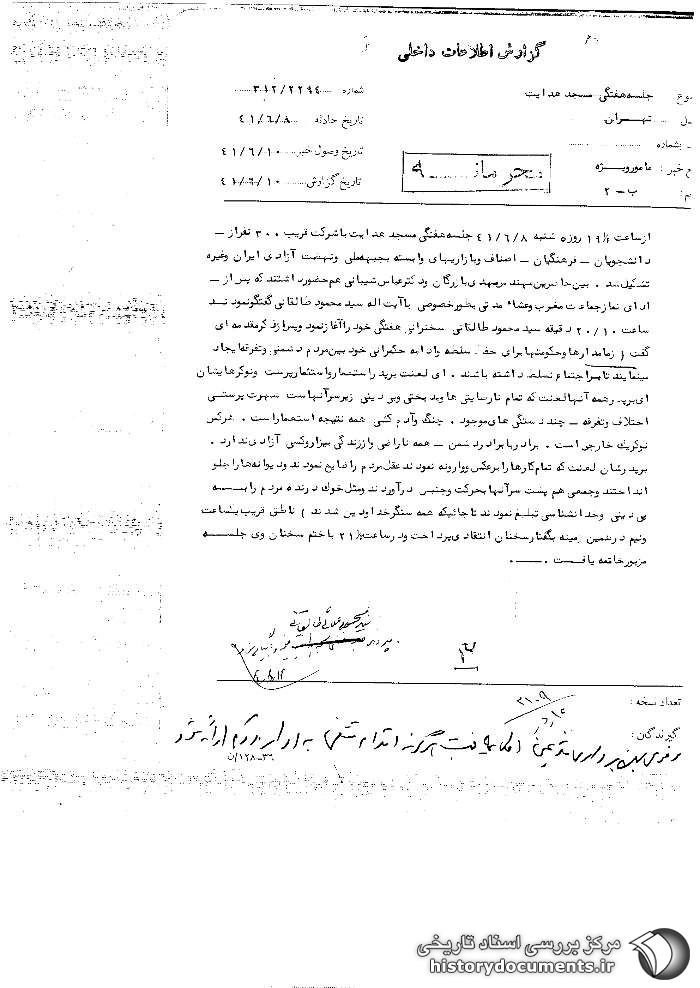 گزارش اطلاعات داخلی
وع جلسه هفتگی مسجد هدایت شماره ۳۱۲/۲۲۹۴
ـل تهران تاریخ حادثه ۴۱/۶/۸
ـ بشماره تاریخ وصول خبر ۴۱/۶/۱۰
ع خبر : مامور ویژه تاریخ گزارش ۴۱/۶/۱۰
م: ب – ۲
محرمانه
از ساعت ۱۹/۵ روز ۵ شنبه ۴۱/۶/۸ جلسه هفتگی مسجد هدایت با شرکت قریب ۳۰۰ نفر از –
دانشجویان – فرهنگیان – اصناف و بازاریهای وابسته بجبهه ملی و نهضت آزادی ایران و غیره
تشکیل شد . بین حاضرین مهندس مهدی بازرگان و دکتر عباس شیبانی هم حضور داشتند که پس از –
ادای نماز جماعت مغرب و عشاء مدتی بطور خصوصی با آیت اله سید محمود طالقانی گفتگو نمودند
ساعت ۲۰/۱۰ دقیقه سید محمود طالقانی سخنرانی هفتگی خود را آغاز نمود و پس از ذکر مقدمه ای
گفت ( زمامدارها و حکومتها برای حفظ سلطه و ادامه حکمرانی خود بین مردم دشمنی و تفرقه ایجاد
مینمایند تا بر اجتماع تسلط داشته باشند . ای لعنت بر پدر استعمار و استثمار پرست و نوکرهایشان
ای بر پدر همه آنها لعنت که تمام نارسایتی ها و بدبختی و بی دینی زیر سر آنهاست شهوت پرستی
اختلاف و تفرقه – چند دستگی های موجود . جنگ و آدم کشی همه نتیجه استعمار است . هر کس
نوکر یک خارجی است . برادر با برادر دشمن – همه ناراضی و از زندگی بیزار و کسی آزادی ندارد .
بر پدرشان لعنت که تمام کارها را برعکس و وارونه نمودند عقل مردم را ضایع نمودند و دیوانه ها را جلو
انداختند و جمعی هم پشت سر آنها بحرکت و جنبش درآوردند و مثل خوک درنده مردم را بـه
بی دینی و خدا نشناسی تبلیغ نمودند تا جائیکه همه سنگر خدا و دین شدند ) ناطق قریب یکساعت
و نیم در همین زمینه بگفتار سخنان انتقادی پرداخت و در ساعت ۲۱/۵ با ختم سخنان وی جلسه
مزبور خاتمه یافت .
تعداد نسخه :
۲۱۰۹
گیرندگان :
۳۶–۱۲۸/ن
مرکز بررسی اسناد تاریخی
historydocuments.ir